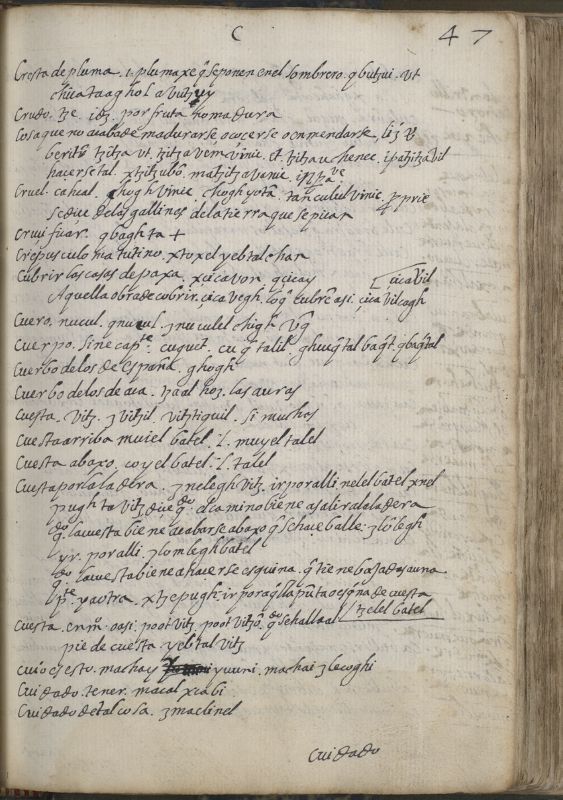 C 47
Cresta de pluma. l. plumaxe q̃ se ponen en el sombrero. qbutzui. vt
chicataaghol a vutzuy
Crudo. tze. idz. por fruta homadura
Cosa que no acaba de madurarse o cocerse o enmendarse
tzitza vt. tzitza vem vinic. et. tzitza
hacerse tal. xtzitzubõ. matzitza vanic
Cruel. cahcal. chogh vinic choghyotã. tan culul vinic
se dice de las gallinas de la tierra que se pican
Crucificar. qbaghta +
Crepusculo matutino. xtoxel yebtal chan
Cubrir las casas de paxa. xcicavon qcicay cica vil
Aquella obra de cobrir. cica vegh. lo q̃ cubrẽ asi. cica vil cogh
Cuero. nucul. qnucul. ʒnuculel chigh
Cuerpo. sine capte. cuquit. cu q̃talil.
Cuerbo de los de españa. ghogh
Cuerbo de los de aca. tzaal hoz. las auras
Cuesta. vitz. ʒvitzil. vitztiquil. si muchas
Cuesta arriba muiel batel. l. muyel talel
Cuesta abaxo. coyel batel. l. talel
Cuesta por la ladera. ʒnelegh vitz. ir por alli nelel batel xnel
pughta vitz dice q̃do el camino biene a salir a la ladera
q̃do la cuesta biene acabarse abaxo q̃ se hace balle. ʒlõlegh
yr. por alli ʒlomlegh batel
q̃do la cuesta biene a hacerse esquina. q̃ tiene baxadas a una
pte. ya otra. xtzepugh. ir por aq̃lla pũta o esqna de cuesta
tzelel batel
Cuesta. enm̃. o asi. poot vitz poot vitzõ. q̃do se halla al
pie de cuesta yebtal vitz
cuio es esto. machay yuuni. machai ʒlecoghi
Cuidado. tener. macal xcabi
Cuidado de tal cosa. ʒmaclinel
Cuidado